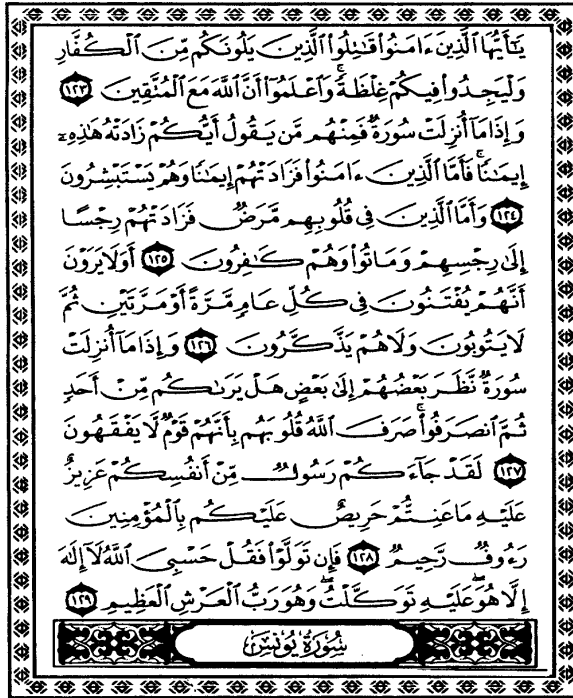 يَٰٓأَيُّهَا ٱلَّذِينَ ءَامَنُوا۟ قَٰتِلُوا۟ ٱلَّذِينَ يَلُونَكُم مِّنَ ٱلْكُفَّارِ
وَلْيَجِدُوا۟ فِيكُمْ غِلْظَةً ۚ وَٱعْلَمُوٓا۟ أَنَّ ٱللَّهَ مَعَ ٱلْمُتَّقِينَ ١٢٣
وَإِذَا مَآ أُنزِلَتْ سُورَةٌ فَمِنْهُم مَّن يَقُولُ أَيُّكُمْ زَادَتْهُ هَٰذِهِۦٓ
إِيمَٰنًا ۚ فَأَمَّا ٱلَّذِينَ ءَامَنُوا۟ فَزَادَتْهُمْ إِيمَٰنًا وَهُمْ يَسْتَبْشِرُونَ
١٢٤ وَأَمَّا ٱلَّذِينَ فِى قُلُوبِهِم مَّرَضٌ فَزَادَتْهُمْ رِجْسًا
إِلَىٰ رِجْسِهِمْ وَمَاتُوا۟ وَهُمْ كَٰفِرُونَ ١٢٥ أَوَلَا يَرَوْنَ
أَنَّهُمْ يُفْتَنُونَ فِى كُلِّ عَامٍ مَّرَّةً أَوْ مَرَّتَيْنِ ثُمَّ
لَا يَتُوبُونَ وَلَا هُمْ يَذَّكَّرُونَ ١٢٦ وَإِذَا مَآ أُنزِلَتْ
سُورَةٌ نَّظَرَ بَعْضُهُمْ إِلَىٰ بَعْضٍ هَلْ يَرَىٰكُم مِّنْ أَحَدٍ
ثُمَّ ٱنصَرَفُوا۟ ۚ صَرَفَ ٱللَّهُ قُلُوبَهُم بِأَنَّهُمْ قَوْمٌ لَّا يَفْقَهُونَ
١٢٧ لَقَدْ جَآءَكُمْ رَسُولٌ مِّنْ أَنفُسِكُمْ عَزِيزٌ
عَلَيْهِ مَا عَنِتُّمْ حَرِيصٌ عَلَيْكُم بِٱلْمُؤْمِنِينَ
رَءُوفٌ رَّحِيمٌ ١٢٨ فَإِن تَوَلَّوْا۟ فَقُلْ حَسْبِىَ ٱللَّهُ لَآ إِلَٰهَ
إِلَّا هُوَ ۖ عَلَيْهِ تَوَكَّلْتُ ۖ وَهُوَ رَبُّ ٱلْعَرْشِ ٱلْعَظِيمِ ١٢٩
سُورَةُ يُونُسَ